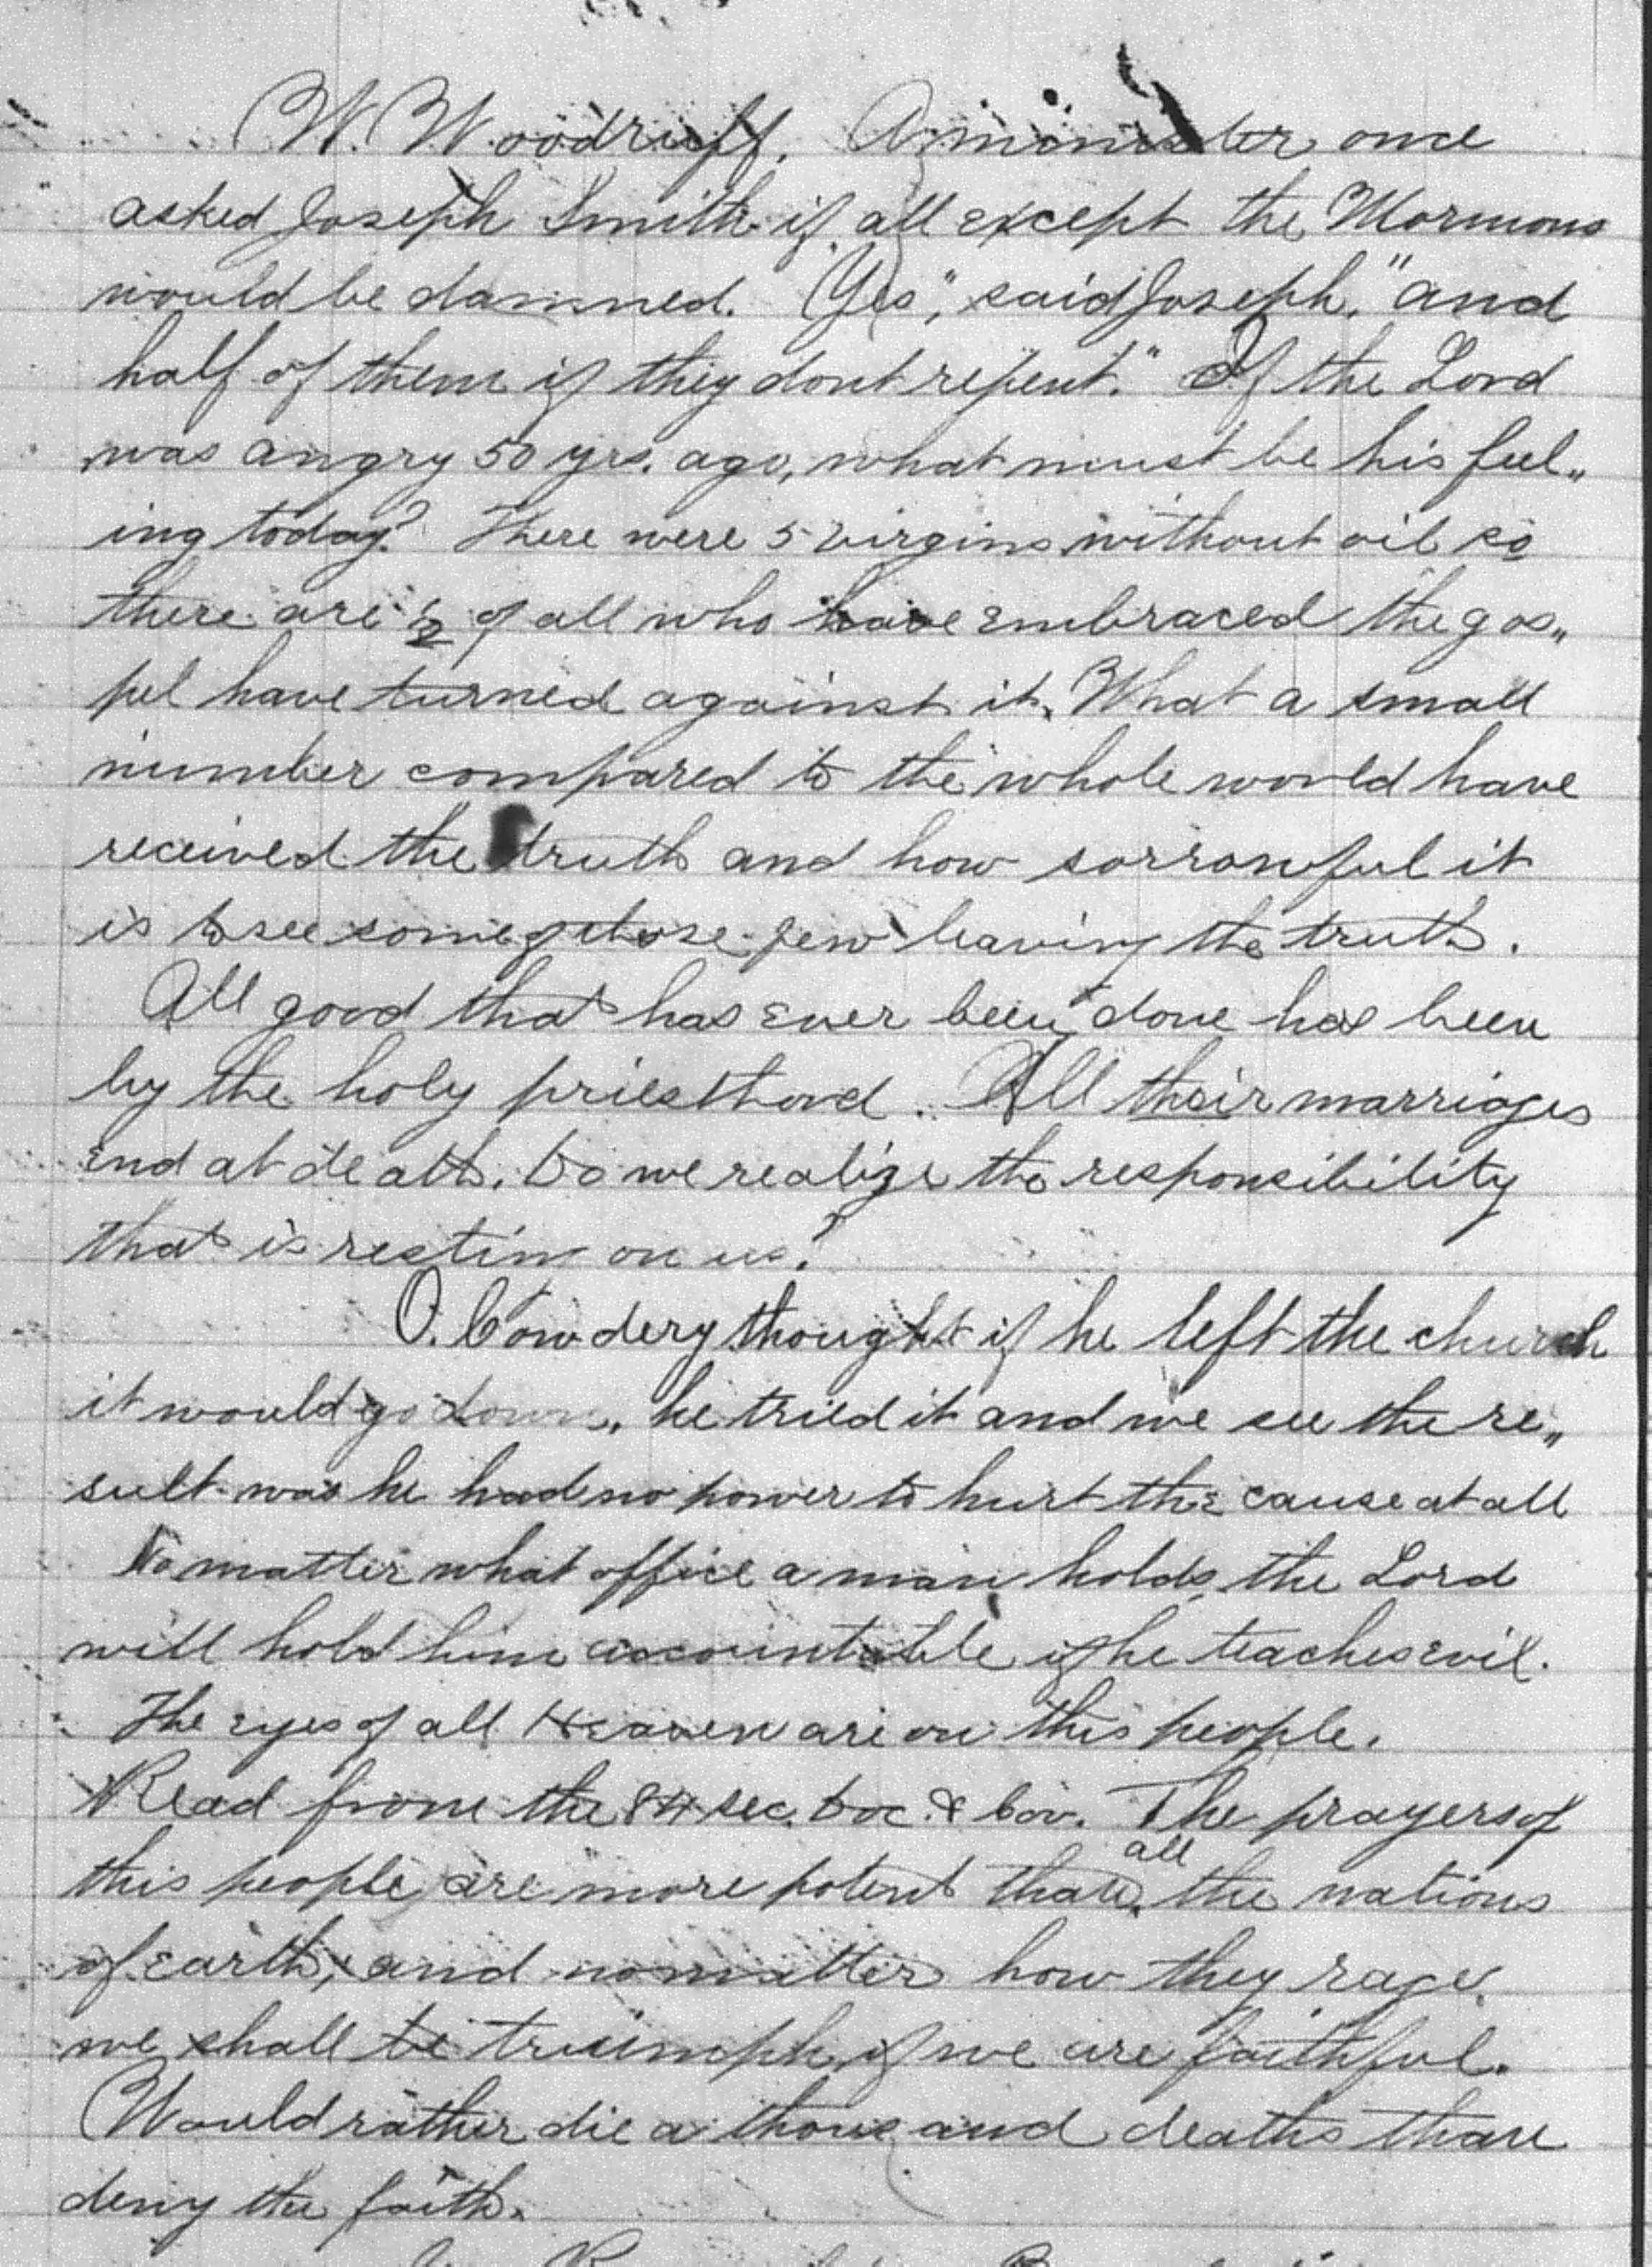 W. Woodruff. A minister once
asked Joseph Smith if all except the Mormons
would be damned. "Yes", said Joseph, "and
half of them if they dont repent." If the Lord
was angry 50 yrs. ago, what must be his feel„
ing today? There were 5 virgins without oil so
there are ½ of all who have embraced the gos„
pel have turned against it. What a small
number compared to the whole world have
received the truth and how sorrowful it
is to see some of those few leaving the truth.
All good that has ever been done has been
by the holy priesthood. All their marriages
end at death. Do we realize the responsibility
that is resting on us?
O. Cowdery thought if he left the church
it would go down, he tried it and we see the re„
sult was he had no power to hurt the cause at all
No matter what office a man holds the Lord
will hold him accountable if he teaches evil.
The eyes of all Heaven are on this people.
Read from the 84 sec. Doc. & Cov. The prayers of
this people are more potent than all the nations
of earth, and no matter how they rage
we shall te triumph if we are faithful.
Would rather die a thousand deaths than
deny the faith.